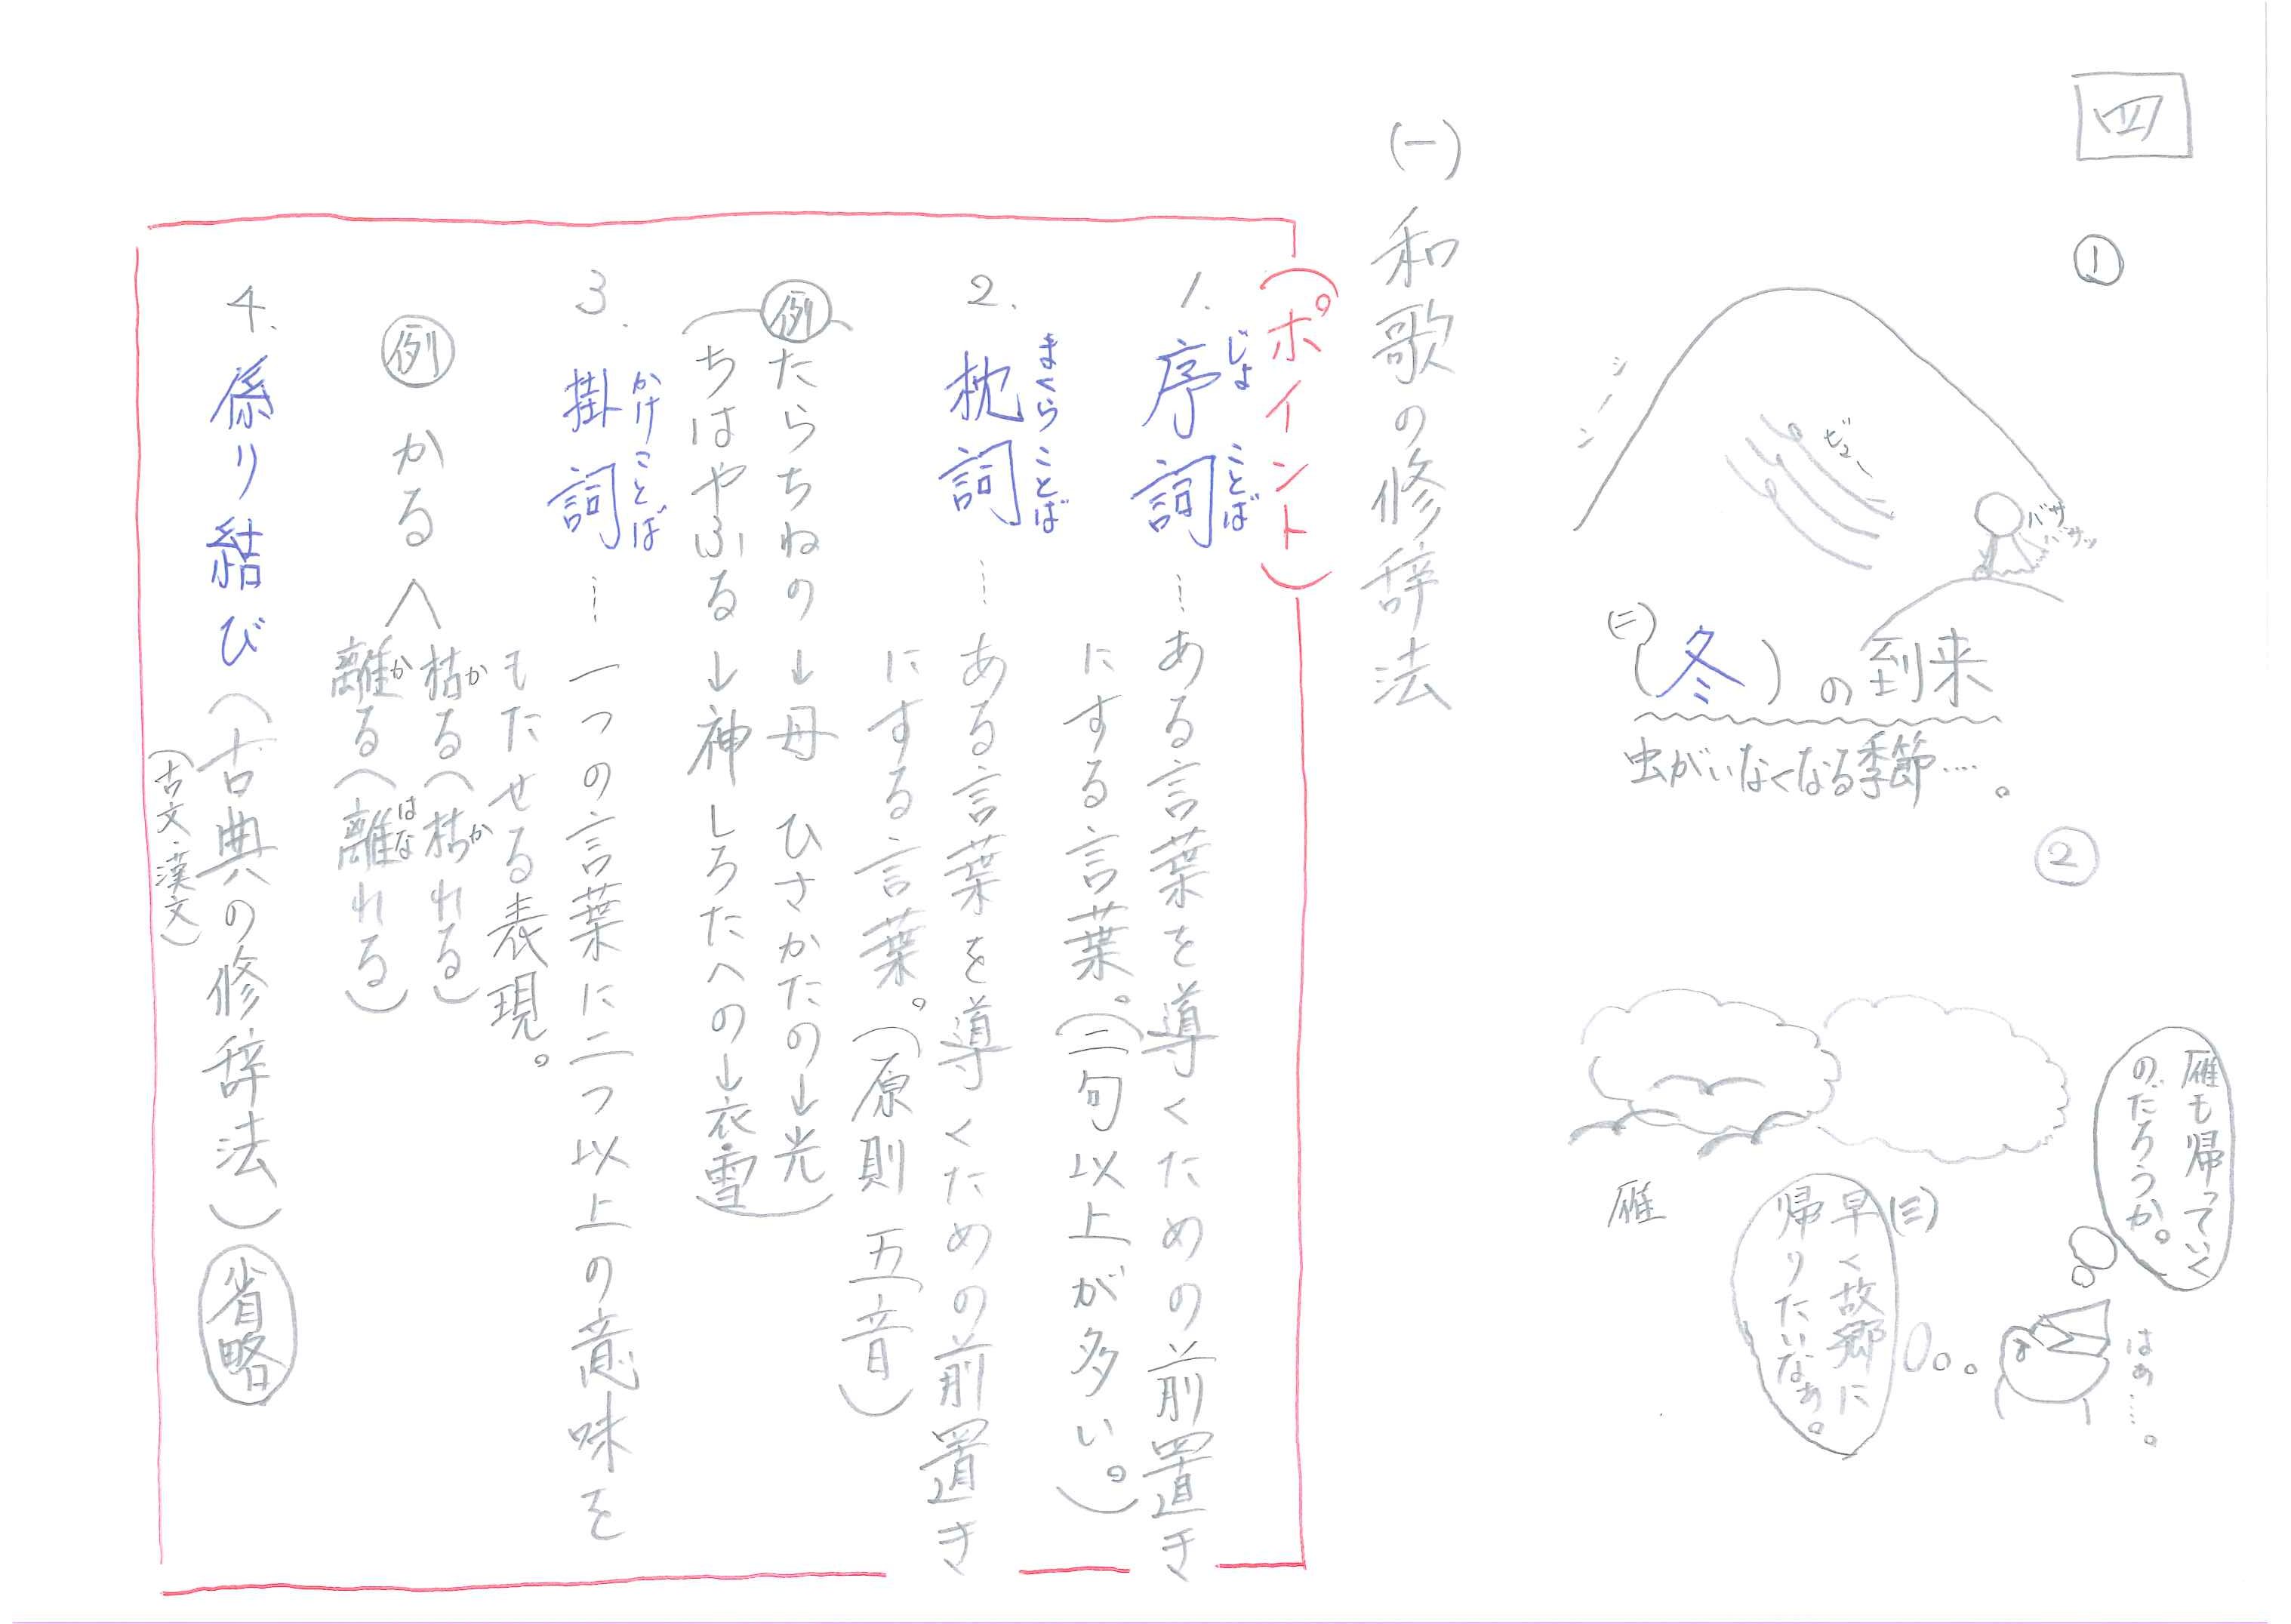 四
①
シーン
ビュー
バサ
バサッ
(二)
(冬)の到来
虫がいなくなる季節…。
②
雁も帰っていく
のだろうか。
はぁ…。
(三)
早く故郷に
帰りたいなぁ。
雁
(一) 和歌の修辞法
(ポイント)
じょ ことば
1. 序詞…ある言葉を導くための前置き
にする言葉。(二句以上が多い。)
まくら ことば
2. 枕詞…ある言葉を導くための前置き
にする言葉。(原則 五音)
例 たらちねの→母 ひさかたの→光
ちはやふる→神 しろたへの→衣・雪
かけ ことば
3. 掛詞…一つの言葉に二つ以上の意味を
もたせる表現。
例 かる
か か
枯る(枯れる)
か はな
離る(離れる)
4. 係り結び(古典の修辞法) 省略
(古文・漢文)